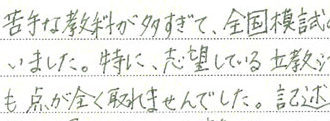 苦手な教科が多すぎて、全国模試
いました。特に、志望している立教
も点が全く取れませんでした。記述